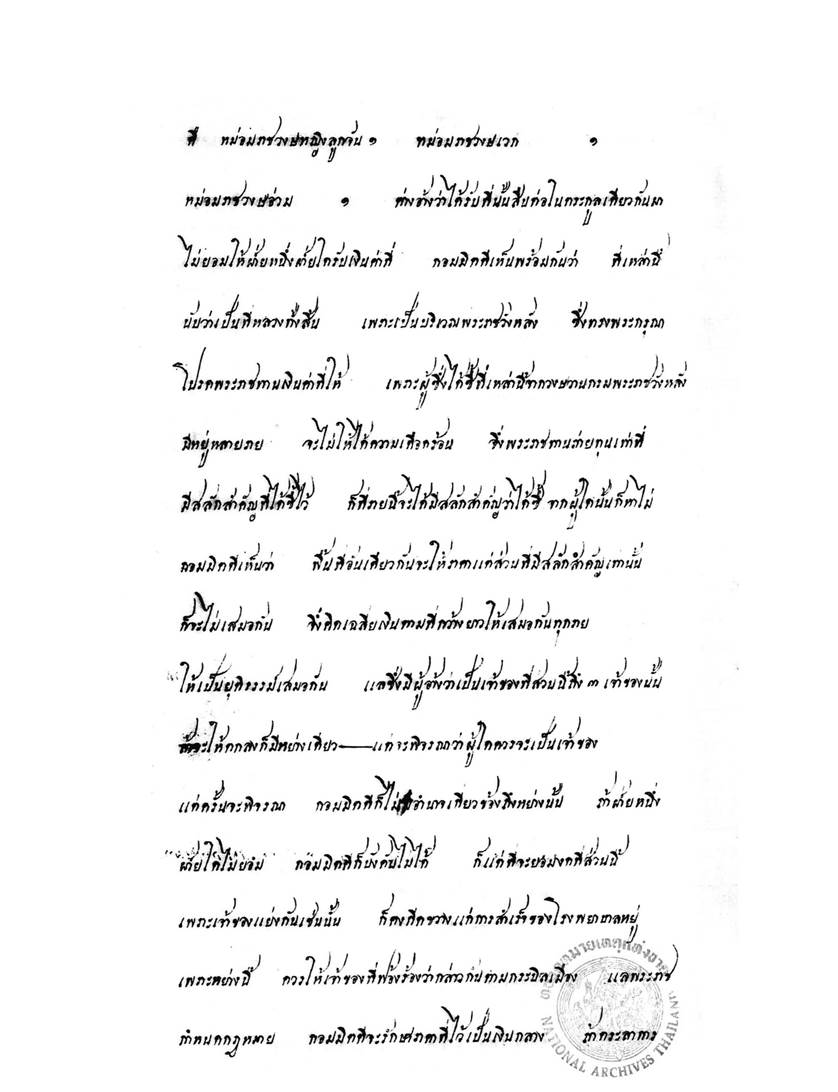 ที่ หม่อมราชวงษหญิงลูกจัน ๑ หม่อมราชวงษเวก ๑
หม่อมราชวงษอ่วม ๑ ต่างอ้างว่าได้รับที่นั้นสืบต่อในตระกูลเดียวกันมา
ไม่ยอมให้ฝ่ายหนึ่งฝ่ายใดรับเงินค่าที่ คอมมิตตีเห็นพร้อมกันว่า ที่เหล่านี้
นับว่าเป็นที่หลวงทั้งสิ้น เพราะเป็นบริเวณพระราชวังหลัง ซึ่งทรงพระกรุณา
โปรดพระราชทานเงินค่าที่ให้ เพราะผู้ซึ่งได้ซื้อที่เหล่านี้จากวงษวานกรมพระราชวังหลัง
มีอยู่หลายราย จะไม่ให้ได้ความเดือดร้อน จึงพระราชทานถ่ายทุนเท่าที่
มีสลักสำคัญที่ได้ซื้อไว้ ก็ที่รายนี้จะได้มีสลักสำคัญว่าได้ซื้อจากผู้ใดนั้นก็หาไม่
คอมมิตตีเห็นว่า พื้นที่อันเดียวกันจะให้ราคาแต่ส่วนที่มีสลักสำคัญเท่านั้น
ก็จะไม่เสมอกัน จึงคิดเฉลี่ยเงินตามที่กว้างยาวให้เสมอกันทุกราย
ให้เป็นยุติธรรม์เสมอกัน แลซึ่งมีผู้อ้างว่าเป็นเจ้าของที่สวนนี้ถึง ๓ เจ้าของนั้น
ถ้าจะให้ตกลงก็มีอย่างเดียว—แต่จะพิจารณาว่าผู้ใดควรจะเป็นเจ้าของ
แต่ครั้นจะพิจารณา คอมมิตตีก็ไม่มีอำนาจเกี่ยวข้องถึงอย่างนั้น ถ้าฝ่ายหนึ่ง
ฝ่ายใดไม่ยอม คอมมิตตีก็บังคับไม่ได้ ก็แต่ที่จะยอมงดที่สวนนี้
เพราะเจ้าของแย่งกันเช่นนั้น ก็คงกีดขวางแก่การสำเร็จของโรงพยาบาลอยู่
เพราะอย่างนี้ ควรให้เจ้าของที่ฟ้องร้องว่ากล่าวกันตามกระบิลเมือง แลพระราช
กำหนดกฎหมาย คอมมิตตีจะรักษาราคาที่ไว้เป็นเงินกลาง ถ้าตระลาการ
หอจดหมายเหตุแห่งชาติ
NATIONAL ARCHIVES THAILAND